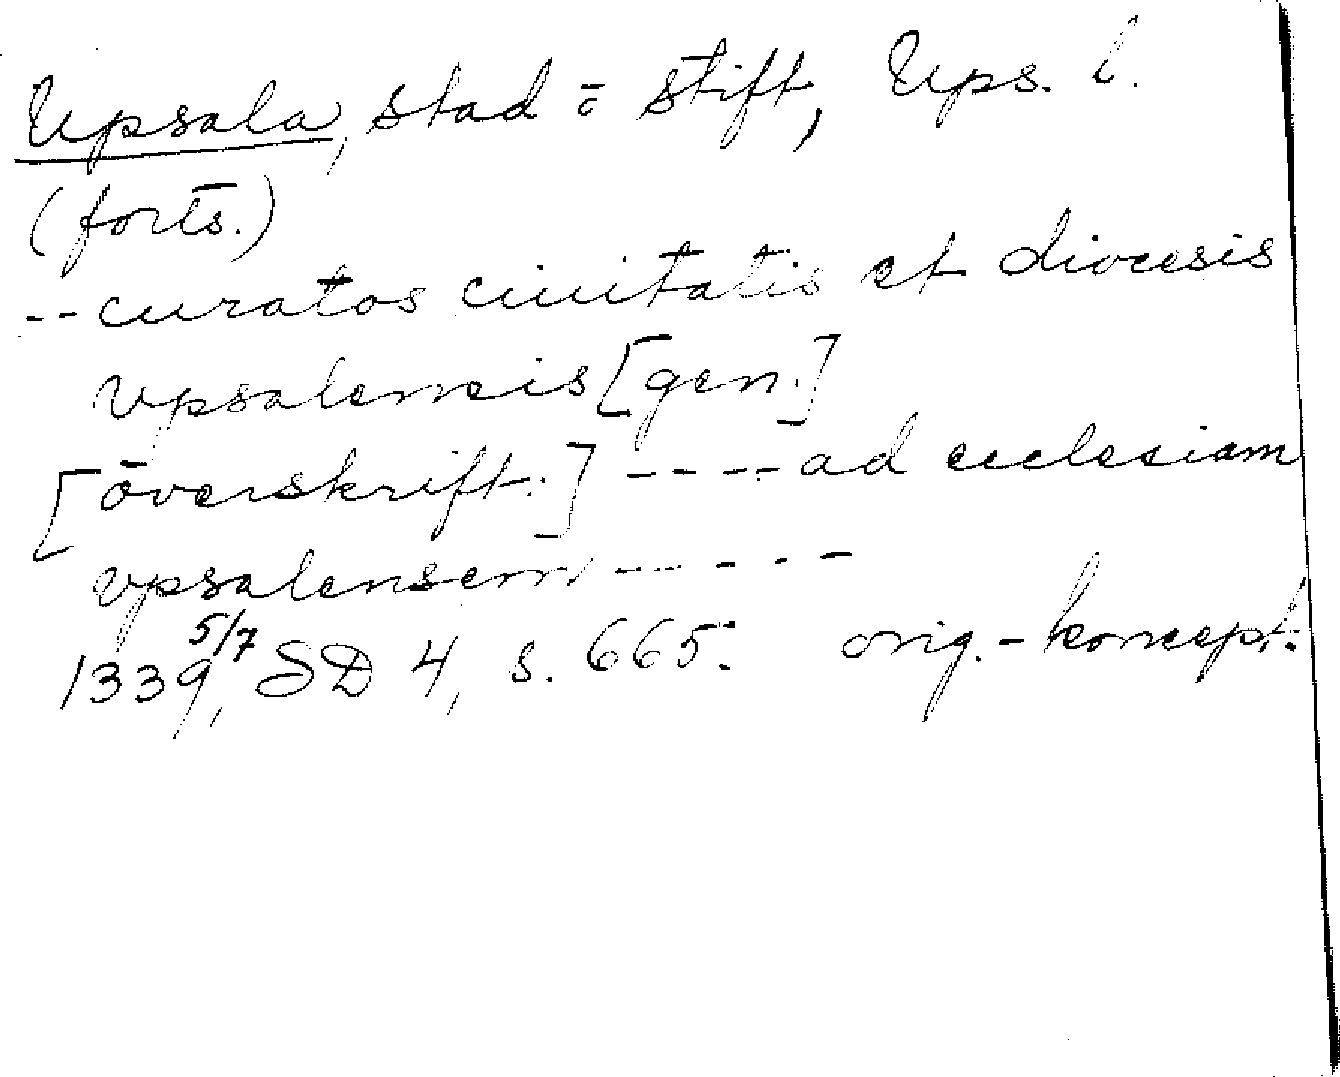 Upsala, stad o stift, Ups. l.
(forts.)
-- curatos ciuitatis et diocesis
vpsalensis [gen.]
[överskrift.] ---- ad ecclesiam
vpsalensem -----
1339 5/7, SD 4, s. 665. orig.-koncept.